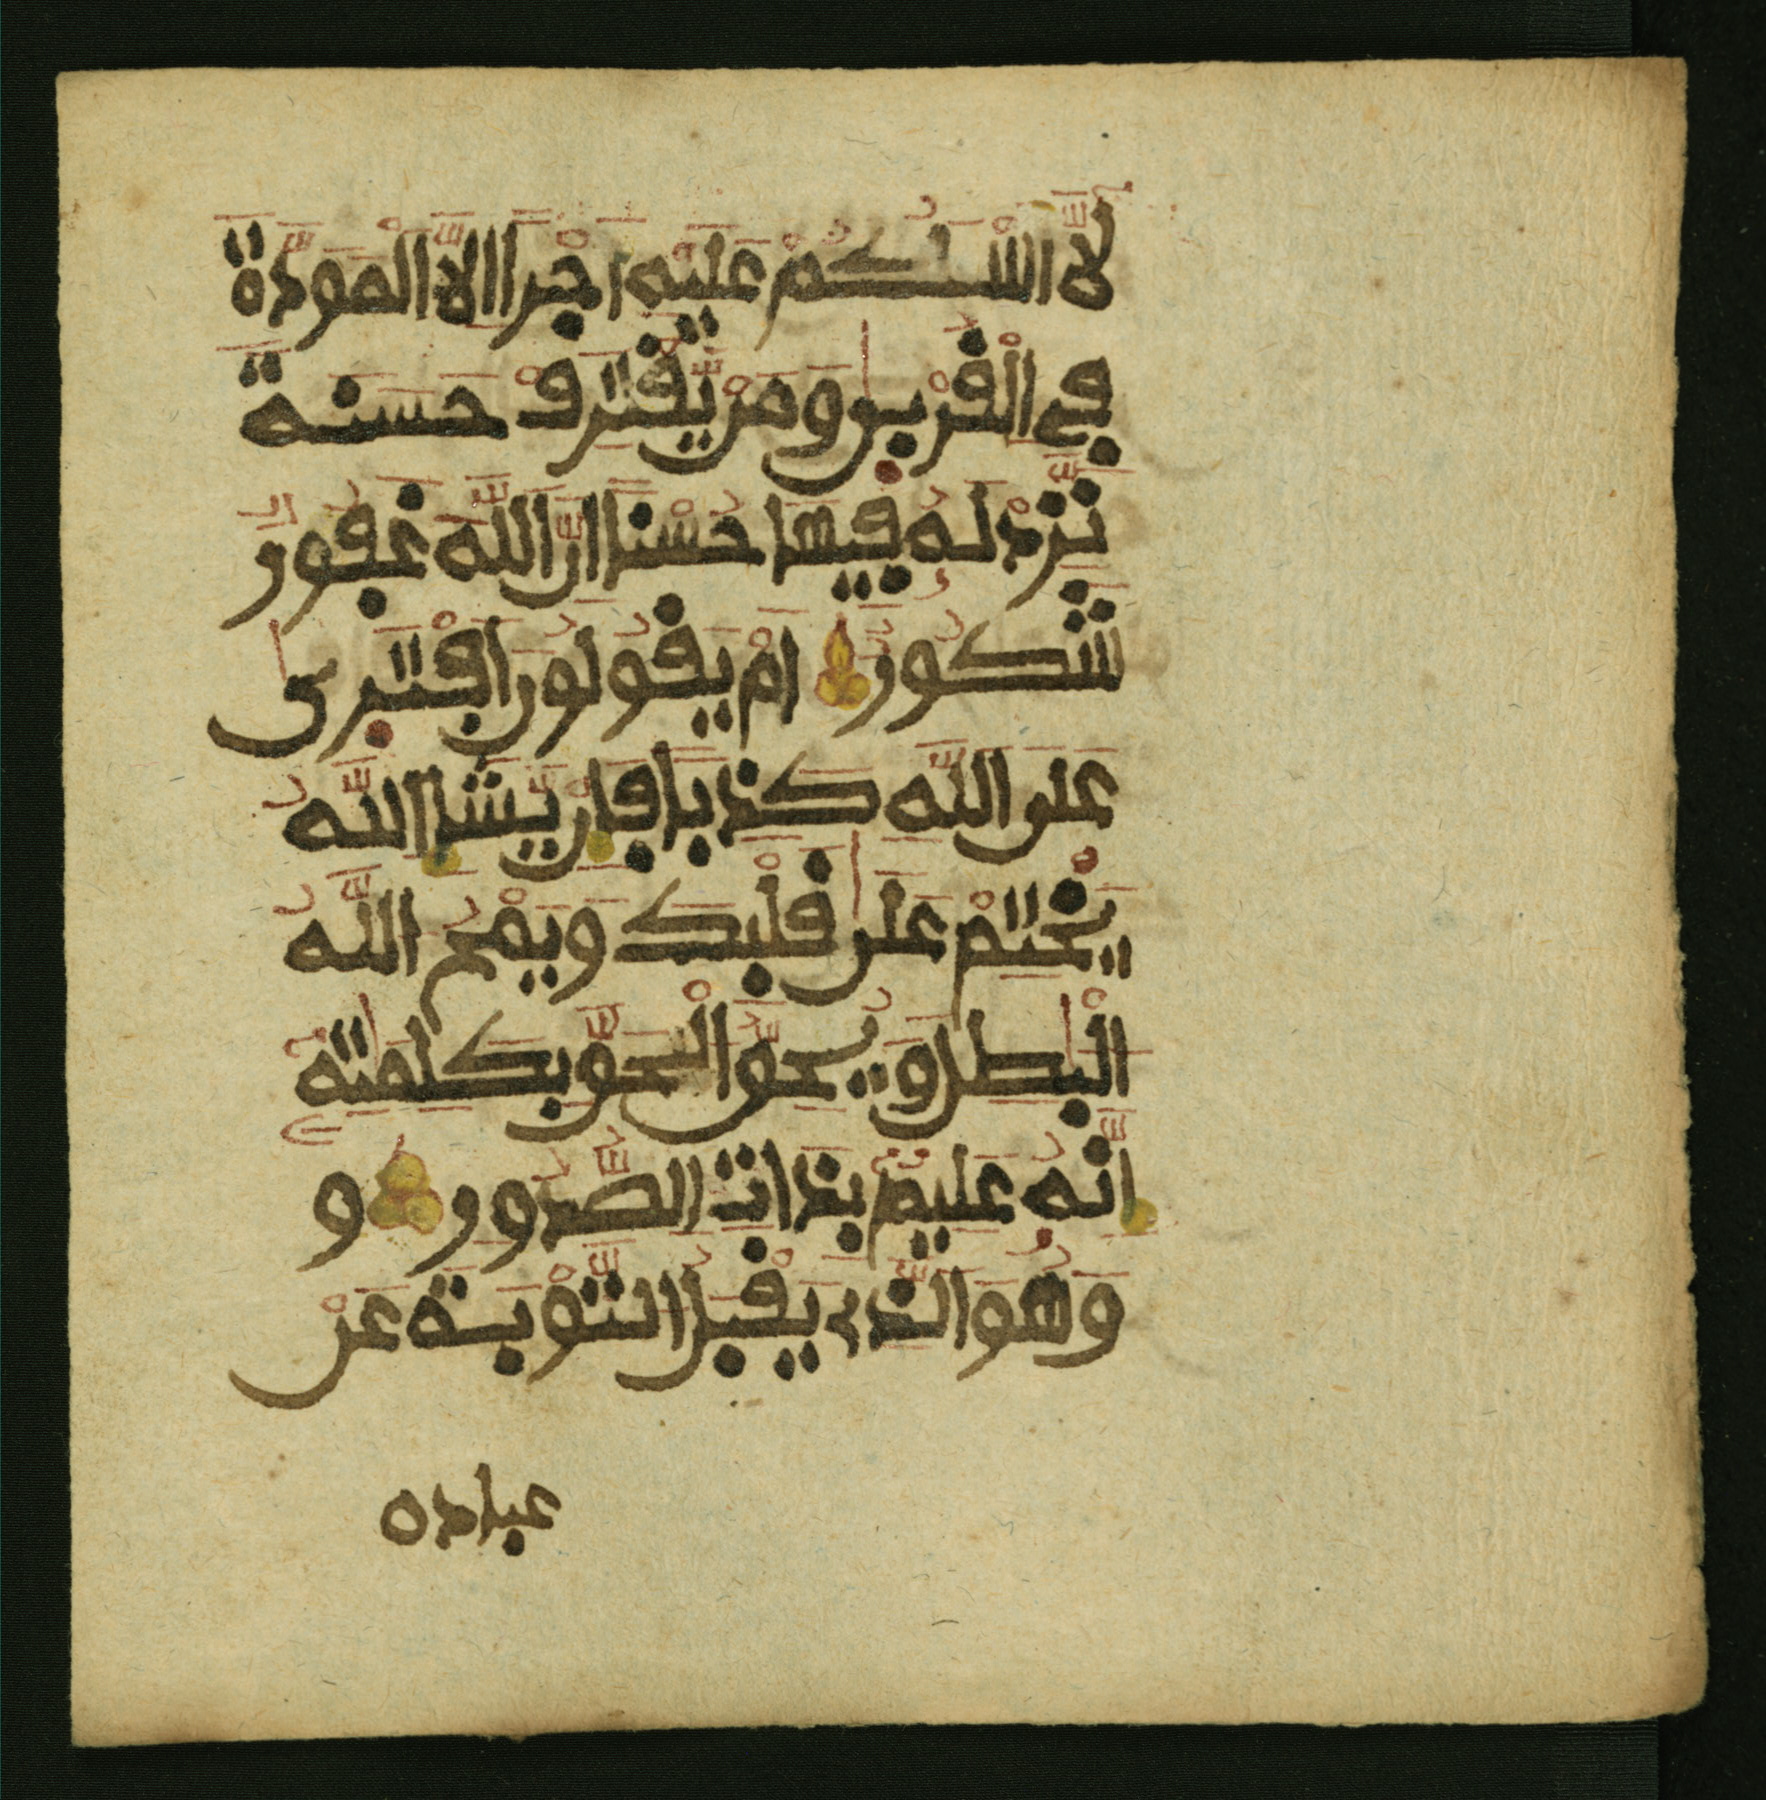 لَّا اَسْـَٔلُكُمْ عَلَيْهِ اَجْرًا اِلَّا اَلْمَوَدَّةَ
فِے اِلْقُرْبٰى وَمَنْ يَّقْتَرِفْ حَسَنَةً
نَّزِدْ لَهُۥ فِيهَا حُسْنًا اِنَّ اَللَّهَ غَفُورٌ
شَكُورٌ اَمْ يَقُولُونَ اَفْتَرٰى
عَلَى اَللَّهِ كَذِبًا فَإِنْ يَّشَإِ اِللَّهُ
يَخْتِمْ عَلٰى قَلْبِكَ وَيَمْحُ اَللَّهُ
اُلْبٰطِلَ وَيُحِقُّ اُلْحَقَّ بِكَلِمٰتِهِۦ
إِنَّهُۥ عَلِيمٌۢ بِذَاتِ اِلصُّدُورِ و
وَهُوَ اَلَّذِى يَقْبَلُ اُلتَّوْبَةَ عَنْ
عباده